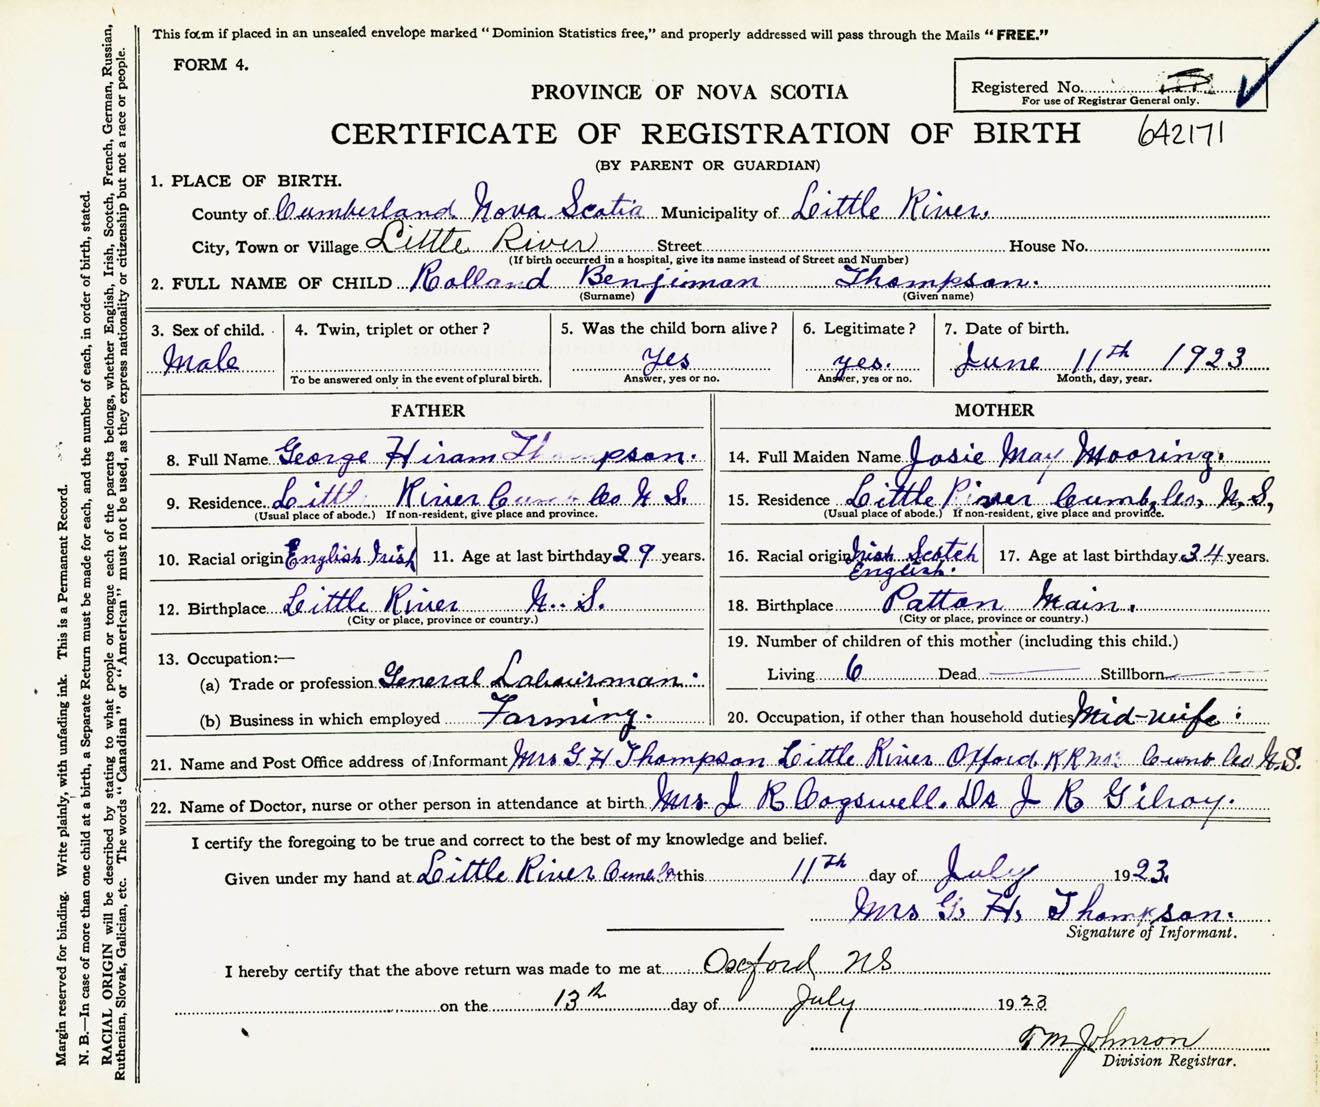 This form if placed in an unsealed envelope marked "Dominion Statistics free," and properly addressed will pass through the Mails "FREE."
FORM 4.
Registered No.
For use of Registrar General only.
PROVINCE OF NOVA SCOTIA
CERTIFICATE OF REGISTRATION OF BIRTH 642171
(BY PARENT OR GUARDIAN)
1. PLACE OF BIRTH.
County of Cumberland Nova Scotia Municipality of Little River.
City, Town or Village Little River Street House No.
(If birth occurred in a hospital, give its name instead of Street and Number)
2. FULL NAME OF CHILD Rolland Benjiman Thompson.
(Surname) (Given name)
3. Sex of child. 4. Twin, triplet or other? 5. Was the child born alive? 6. Legitimate? 7. Date of birth.
Male Yes yes. June 11th 1923
To be answered only in the event of plural birth. Answer, yes or no. Answer, yes or no. Month, day, year.
FATHER MOTHER
8. Full Name George Hiram Thompson. 14. Full Maiden Name Josie May Mooring.
9. Residence Little River Cumb Co N.S. 15. Residence Little River Cumb, Co, N,S,
(Usual place of abode.) If non-resident, give place and province. (Usual place of abode.) If non-resident, give place and province.
10. Racial origin English Irish 11. Age at last birthday 29 years. 16. Racial origin Irish Scotch English. 17. Age at last birthday 34 years.
12. Birthplace Little River N. S. 18. Birthplace Patton Main.
(City or place, province or country.) (City or place, province or country.)
13. Occupation:— 19. Number of children of this mother (including this child.)
(a) Trade or profession General Labourman. Living 6 Dead Stillborn
(b) Business in which employed Farming. 20. Occupation, if other than household duties Mid-wife.
21. Name and Post Office address of Informant Mrs G H Thompson Little River Oxford. R R Cumb Co. N.S.
22. Name of Doctor, nurse or other person in attendance at birth Mrs. J R Cogswell. Dr J R Gilroy.
I certify the foregoing to be true and correct to the best of my knowledge and belief.
Given under my hand at Little River this 11th day of July 1923.
Mrs G. H. Thompson.
Signature of Informant.
I hereby certify that the above return was made to me at Oxford NS
on the 13th day of July 1923
Johnson
Division Registrar.
Margin reserved for binding. Write plainly, with unfading ink. This is a Permanent Record.
N. B.—In case of more than one child at a birth, a Separate Return must be made for each, and the number of each, in order of birth, stated.
RACIAL ORIGIN will be described by stating to what people or tongue each of the parents belongs, whether English, Irish, Scotch, French, German, Russian,
Ruthenian, Slovak, Galician, etc. The words "Canadian" or "American" must not be used, as they express nationality or citizenship but not a race or people.